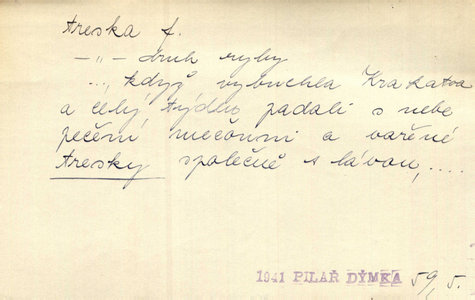 treska f.
–„– druh ryby
..., když vybuchla Krakatoa
a celý týden padali s nebe
pečení mečouni a vařené
tresky společně s lávou, ....
1941 PILAŘ DÝMKA 59, 5.